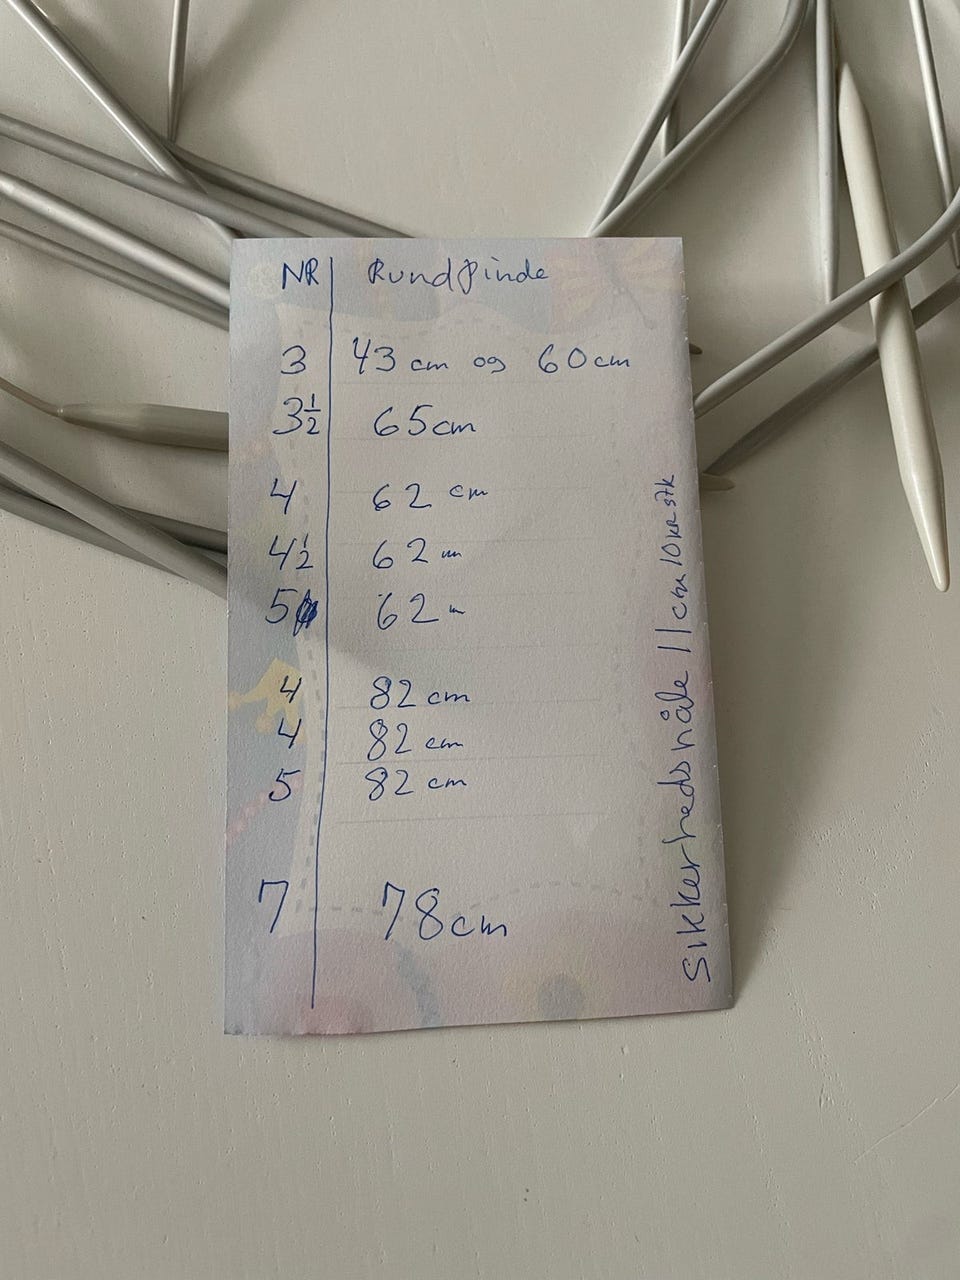 NR Rundpinde
3 43 cm og 60 cm
3½ 65 cm
4 62 cm
4½ 62 cm
5 62 m
4 82 cm
4 82 cm
5 82 cm
7 78 cm
Sikkerhedsnåle 11 cm 10 kr stk